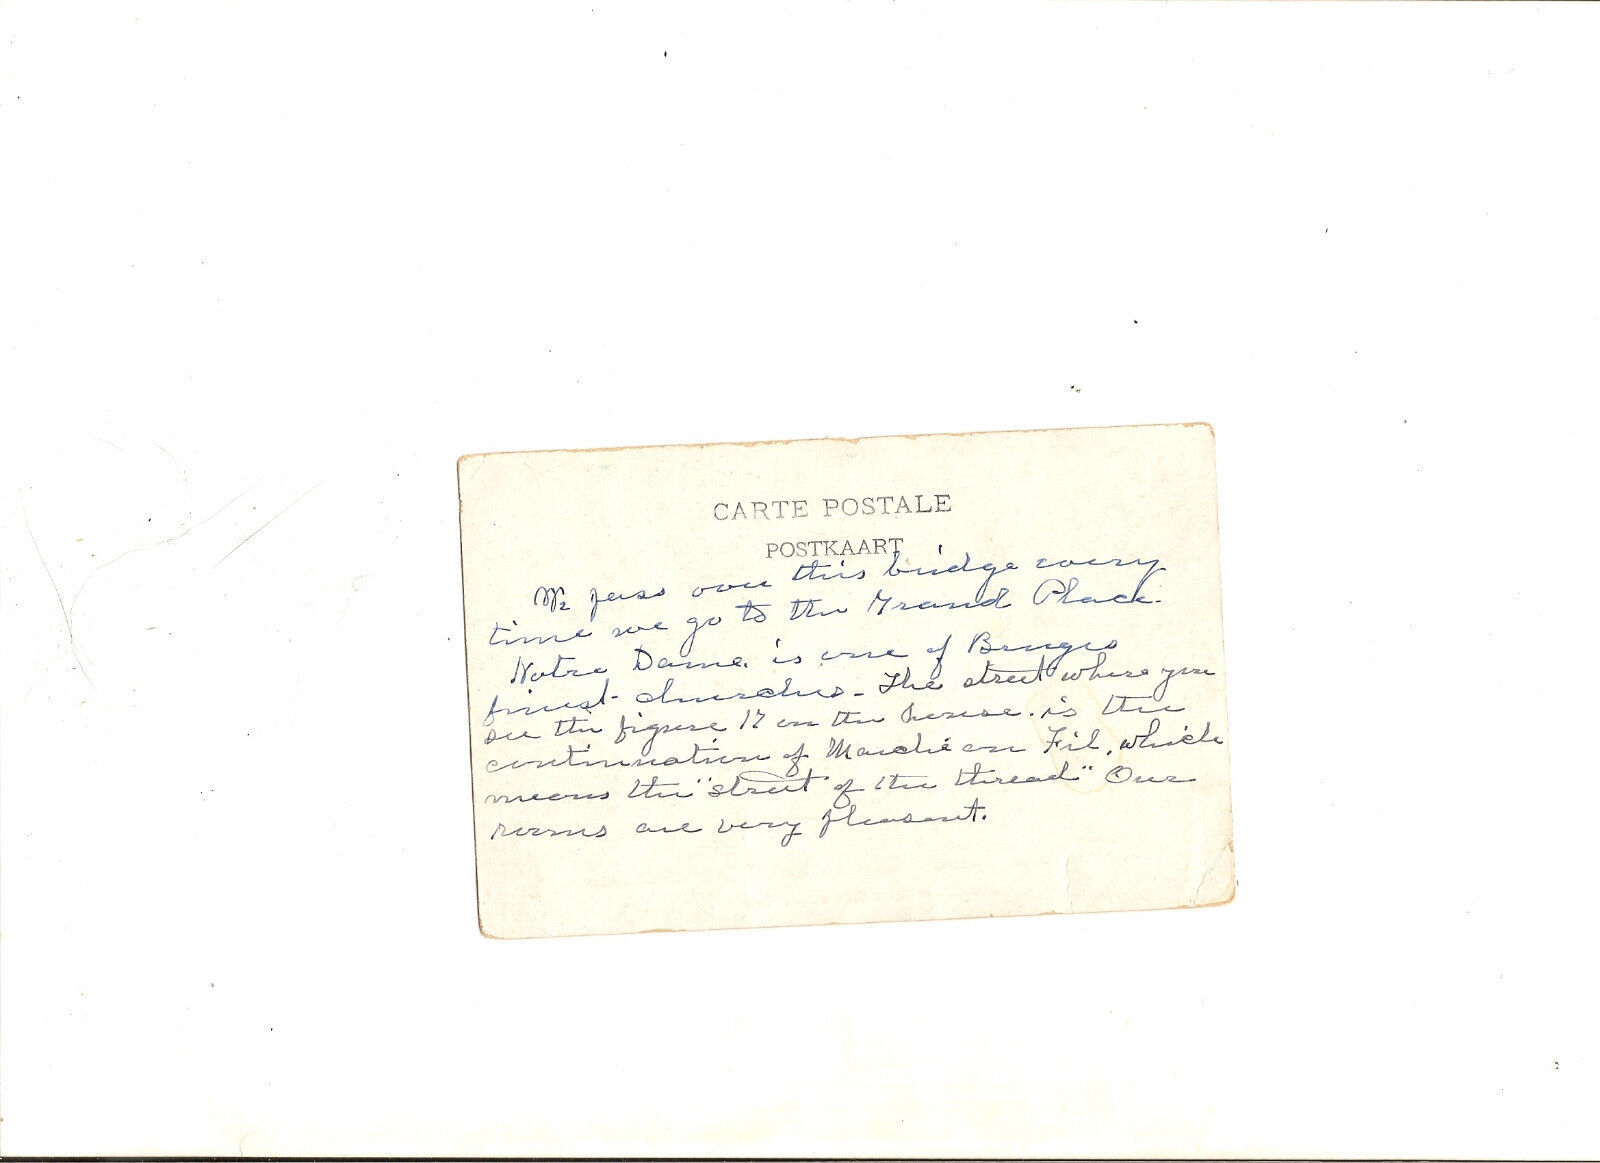 CARTE POSTALE
POSTKAART
We pass over this bridge every
time we go to the Grand Place.
Notre Dame is one of Bruges
finest churches - The street where you
see the figure 17 on the house is the
continuation of Marché au Fil, which
means the "street of the thread" Our
rooms are very pleasant.